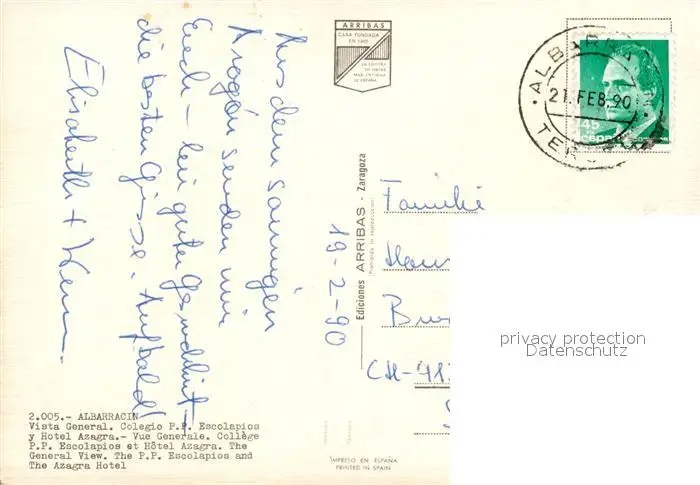 Aus dem sonnigen
Aragón senden wir
Euch – bei guter Gesundheit –
die besten Grüsse. Auf bald!
Elisabeth +
19-2-90
ARRIBAS
CASA FUNDADA
EN 1905
LA EDITORA
DE VISTAS
MAS ANTIGUA
DE ESPAÑA
ALBARRA
21.FEB.90
TER
45
España
Familie
CH-41
Ediciones ARRIBAS - Zaragoza
Prohibida la reproducción
privacy protection
Datenschutz
2.005.- ALBARRACIN
Vista General. Colegio P.P. Escolapios
y Hotel Azagra.- Vue Generale. Collège
P.P. Escolapios et Hôtel Azagra. The
General View. The P.P. Escolapios and
The Azagra Hotel
IMPRESO EN ESPAÑA
PRINTED IN SPAIN